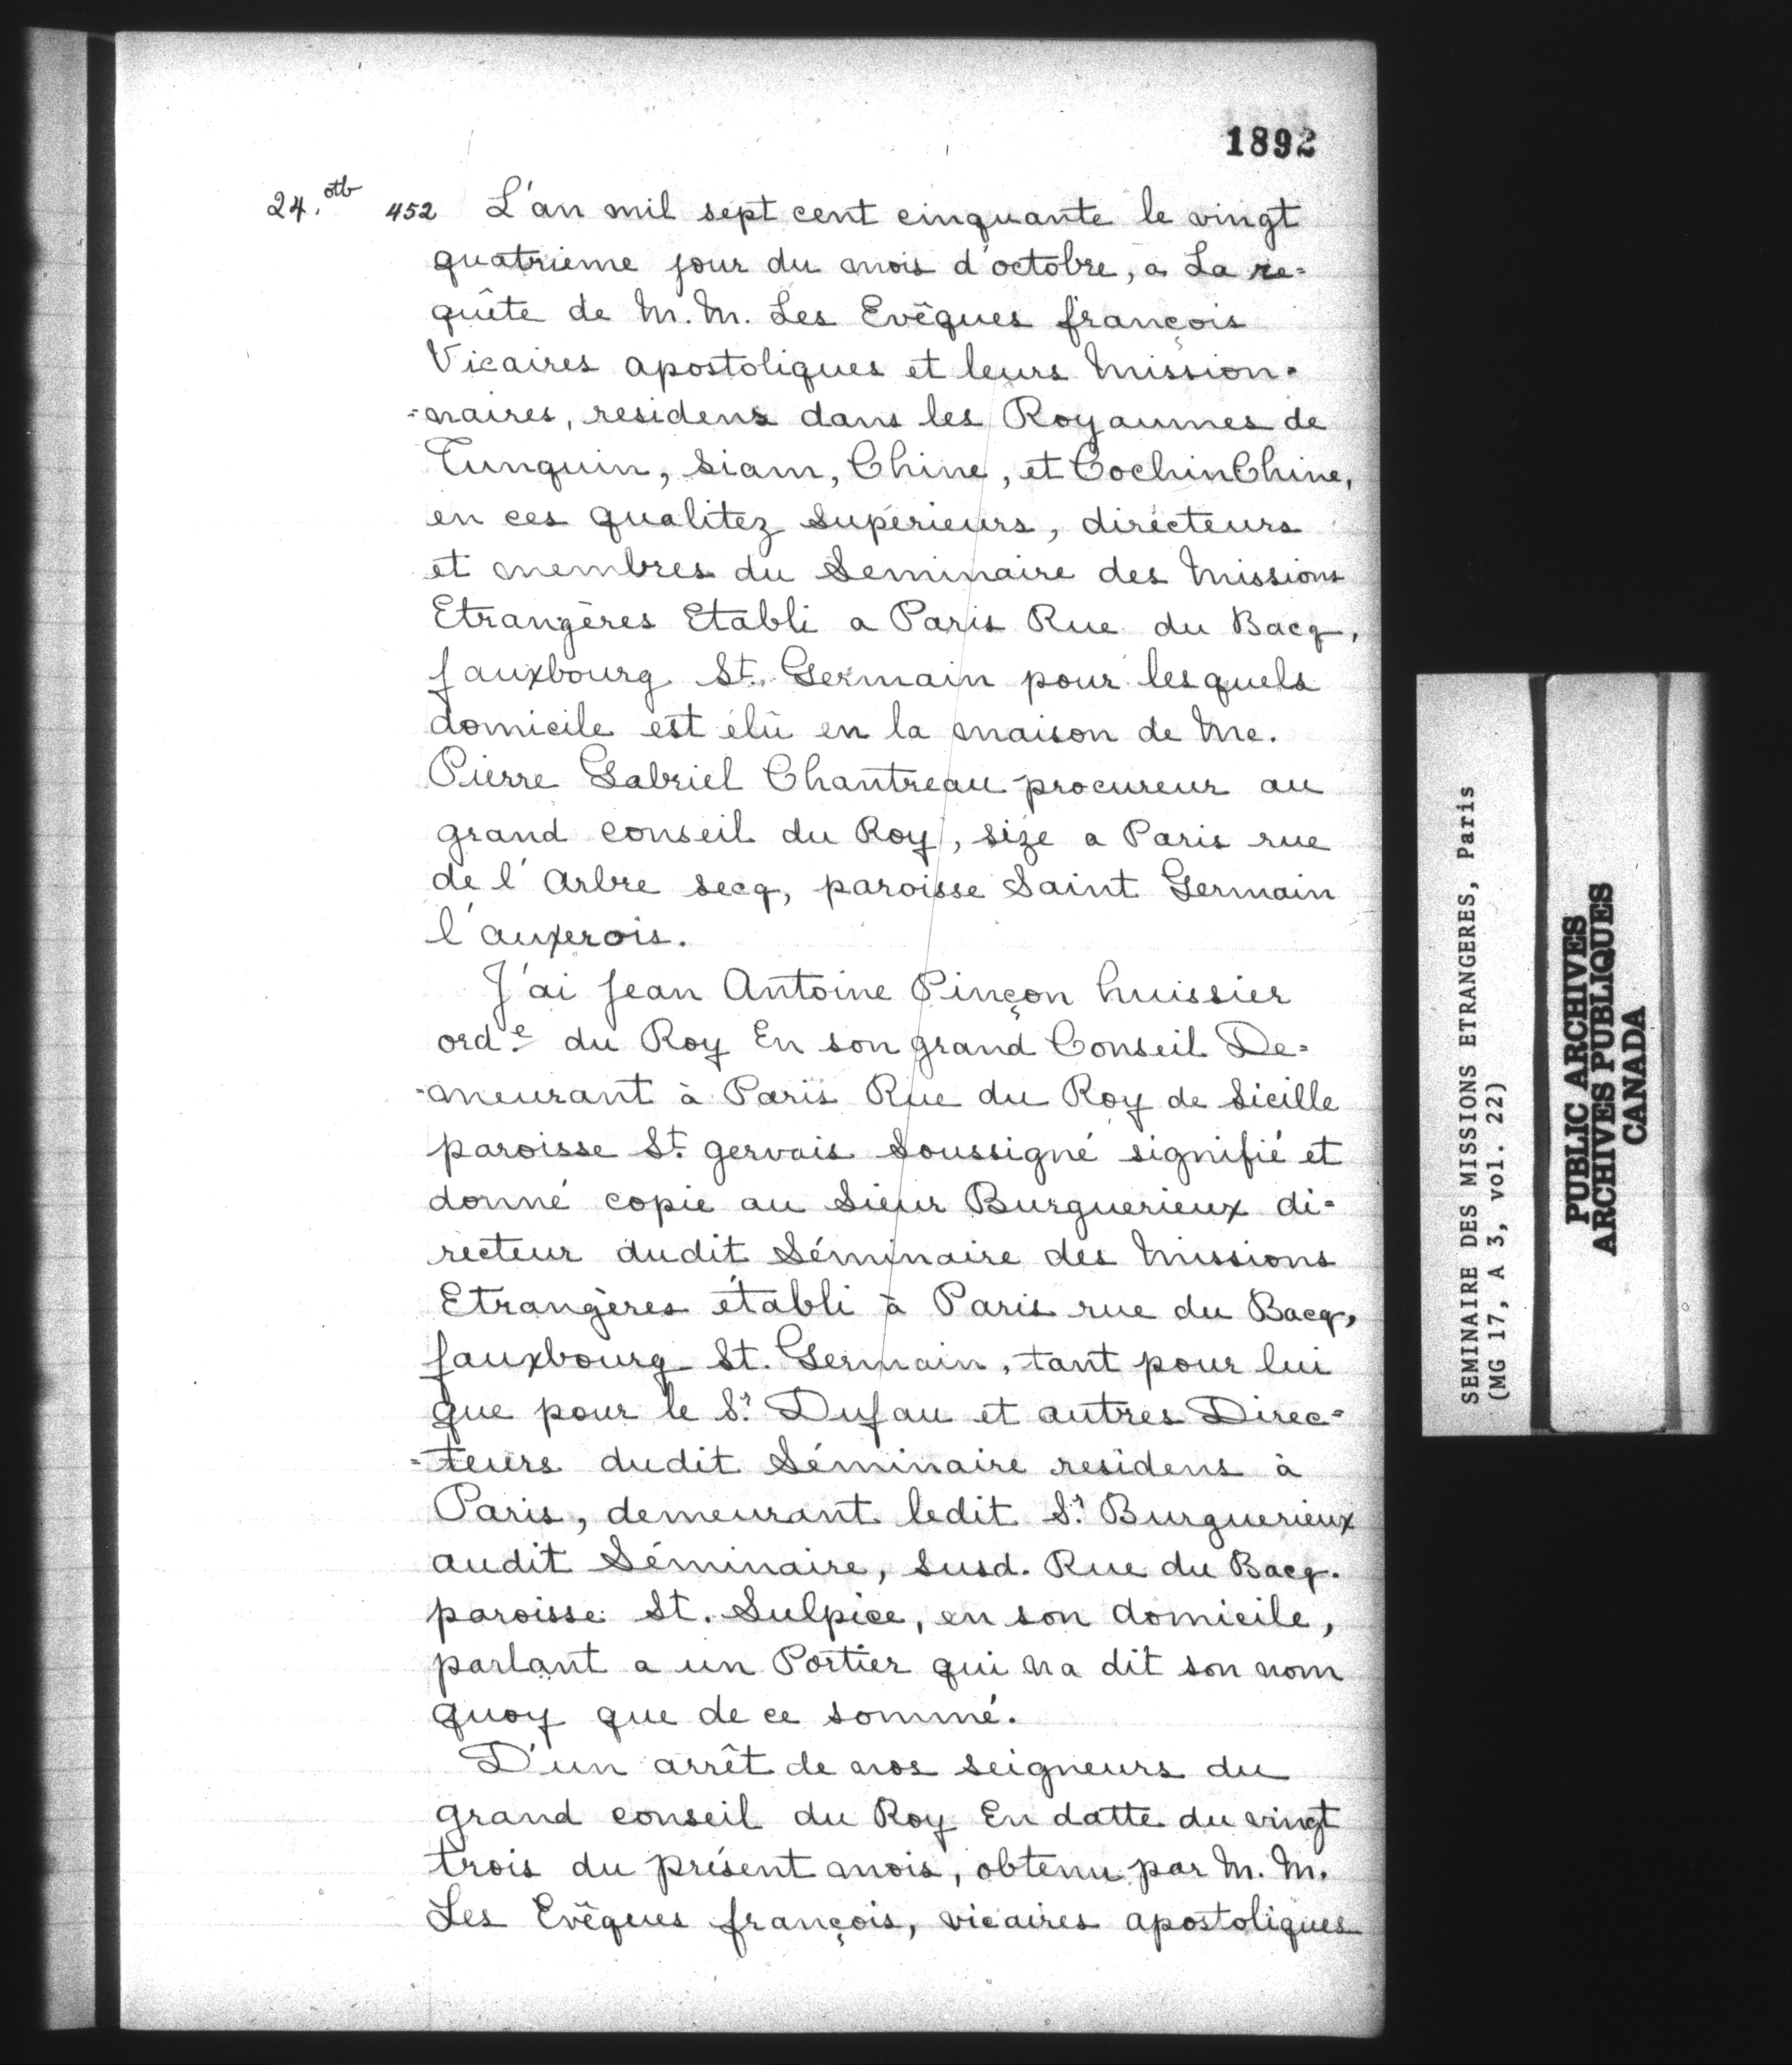 1892
24. otb 452 L'an mil sept cent cinquante le vingt
quatrieme jour du mois d'octobre, a La re=
quête de M. M. Les Evêques françois
Vicaires apostoliques et leurs Mission=
=naires, residens dans les Royaumes de
Tunquin, Siam, Chine, et CochinChine,
en ces qualitez Supérieurs, directeurs
et membres du Seminaire des Missions
Etrangères Etabli a Paris Rue du Bacq,
fauxbourg St. Germain pour lesquels
domicile est élû en la maison de Me.
Pierre Gabriel Chantreau procureur au
grand conseil du Roy, size a Paris rue
de l'Arbre secq, paroisse Saint Germain
l'auxerois.
J'ai Jean Antoine Pinçon huissier
ord.e du Roy En son grand Conseil De=
=meurant à Paris Rue du Roy de Sicille
paroisse St. gervais Soussigné signifié et
donné copie au Sieur Burguerieux di=
recteur dudit Séminaire des Missions
Etrangères établi à Paris rue du Bacq,
fauxbourg St. Germain, tant pour lui
que pour le Sr. Dufau et autres Direc=
=teurs dudit Séminaire residens à
Paris, demeurant ledit Sr. Burguerieux
audit Séminaire, susd. Rue du Bacq.
paroisse St. Sulpice, en son domicile,
parlant a un Portier qui na dit son nom
quoy que de ce sommé.
D'un arrêt de nos seigneurs du
grand conseil du Roy En datte du vingt
trois du présent mois, obtenu par M. M.
Les Evêques françois, vicaires apostoliques
SEMINAIRE DES MISSIONS ETRANGERES, Paris
(MG 17, A 3, vol. 22)
PUBLIC ARCHIVES
ARCHIVES PUBLIQUES
CANADA